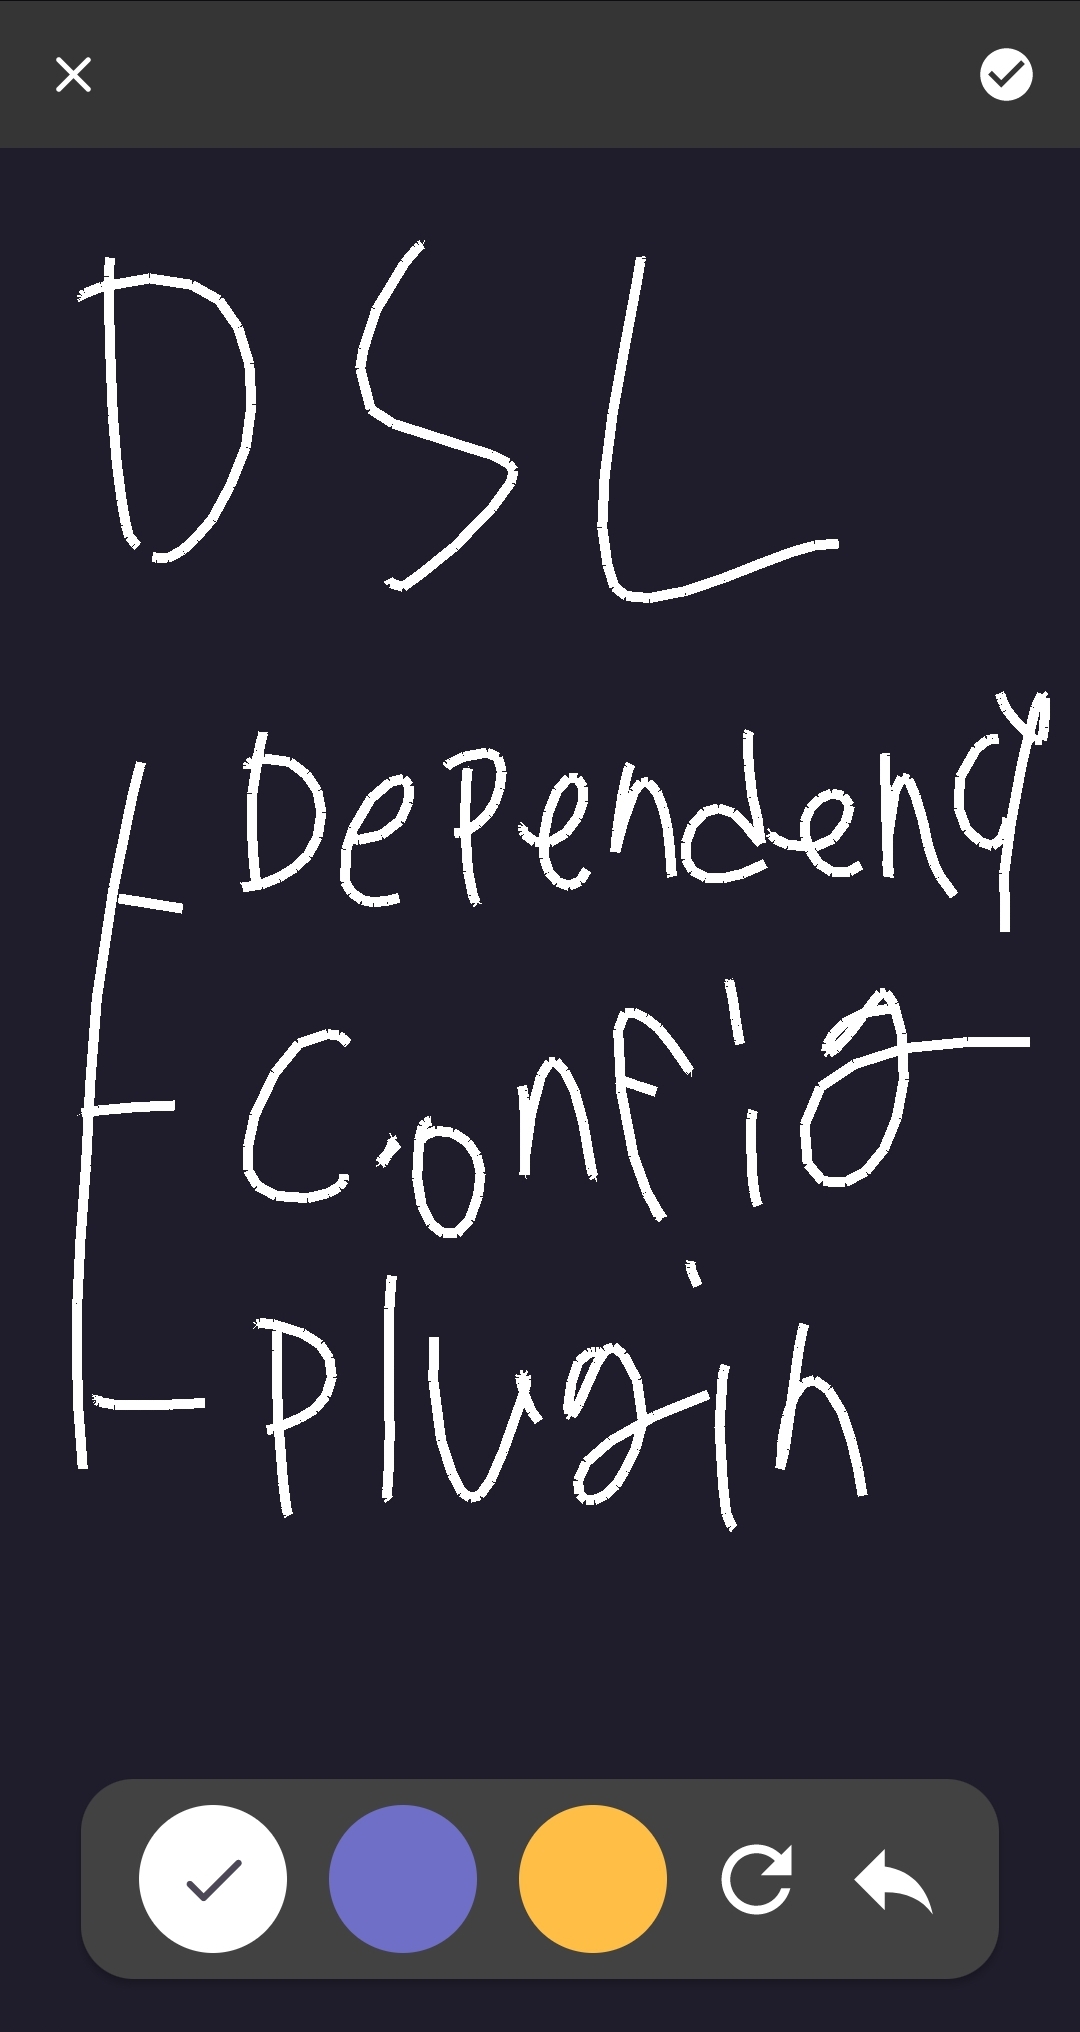 DSL
Dependency
Config
Plugin